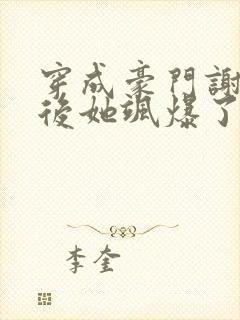 穿成豪門謝
後她颯爆了
李奎